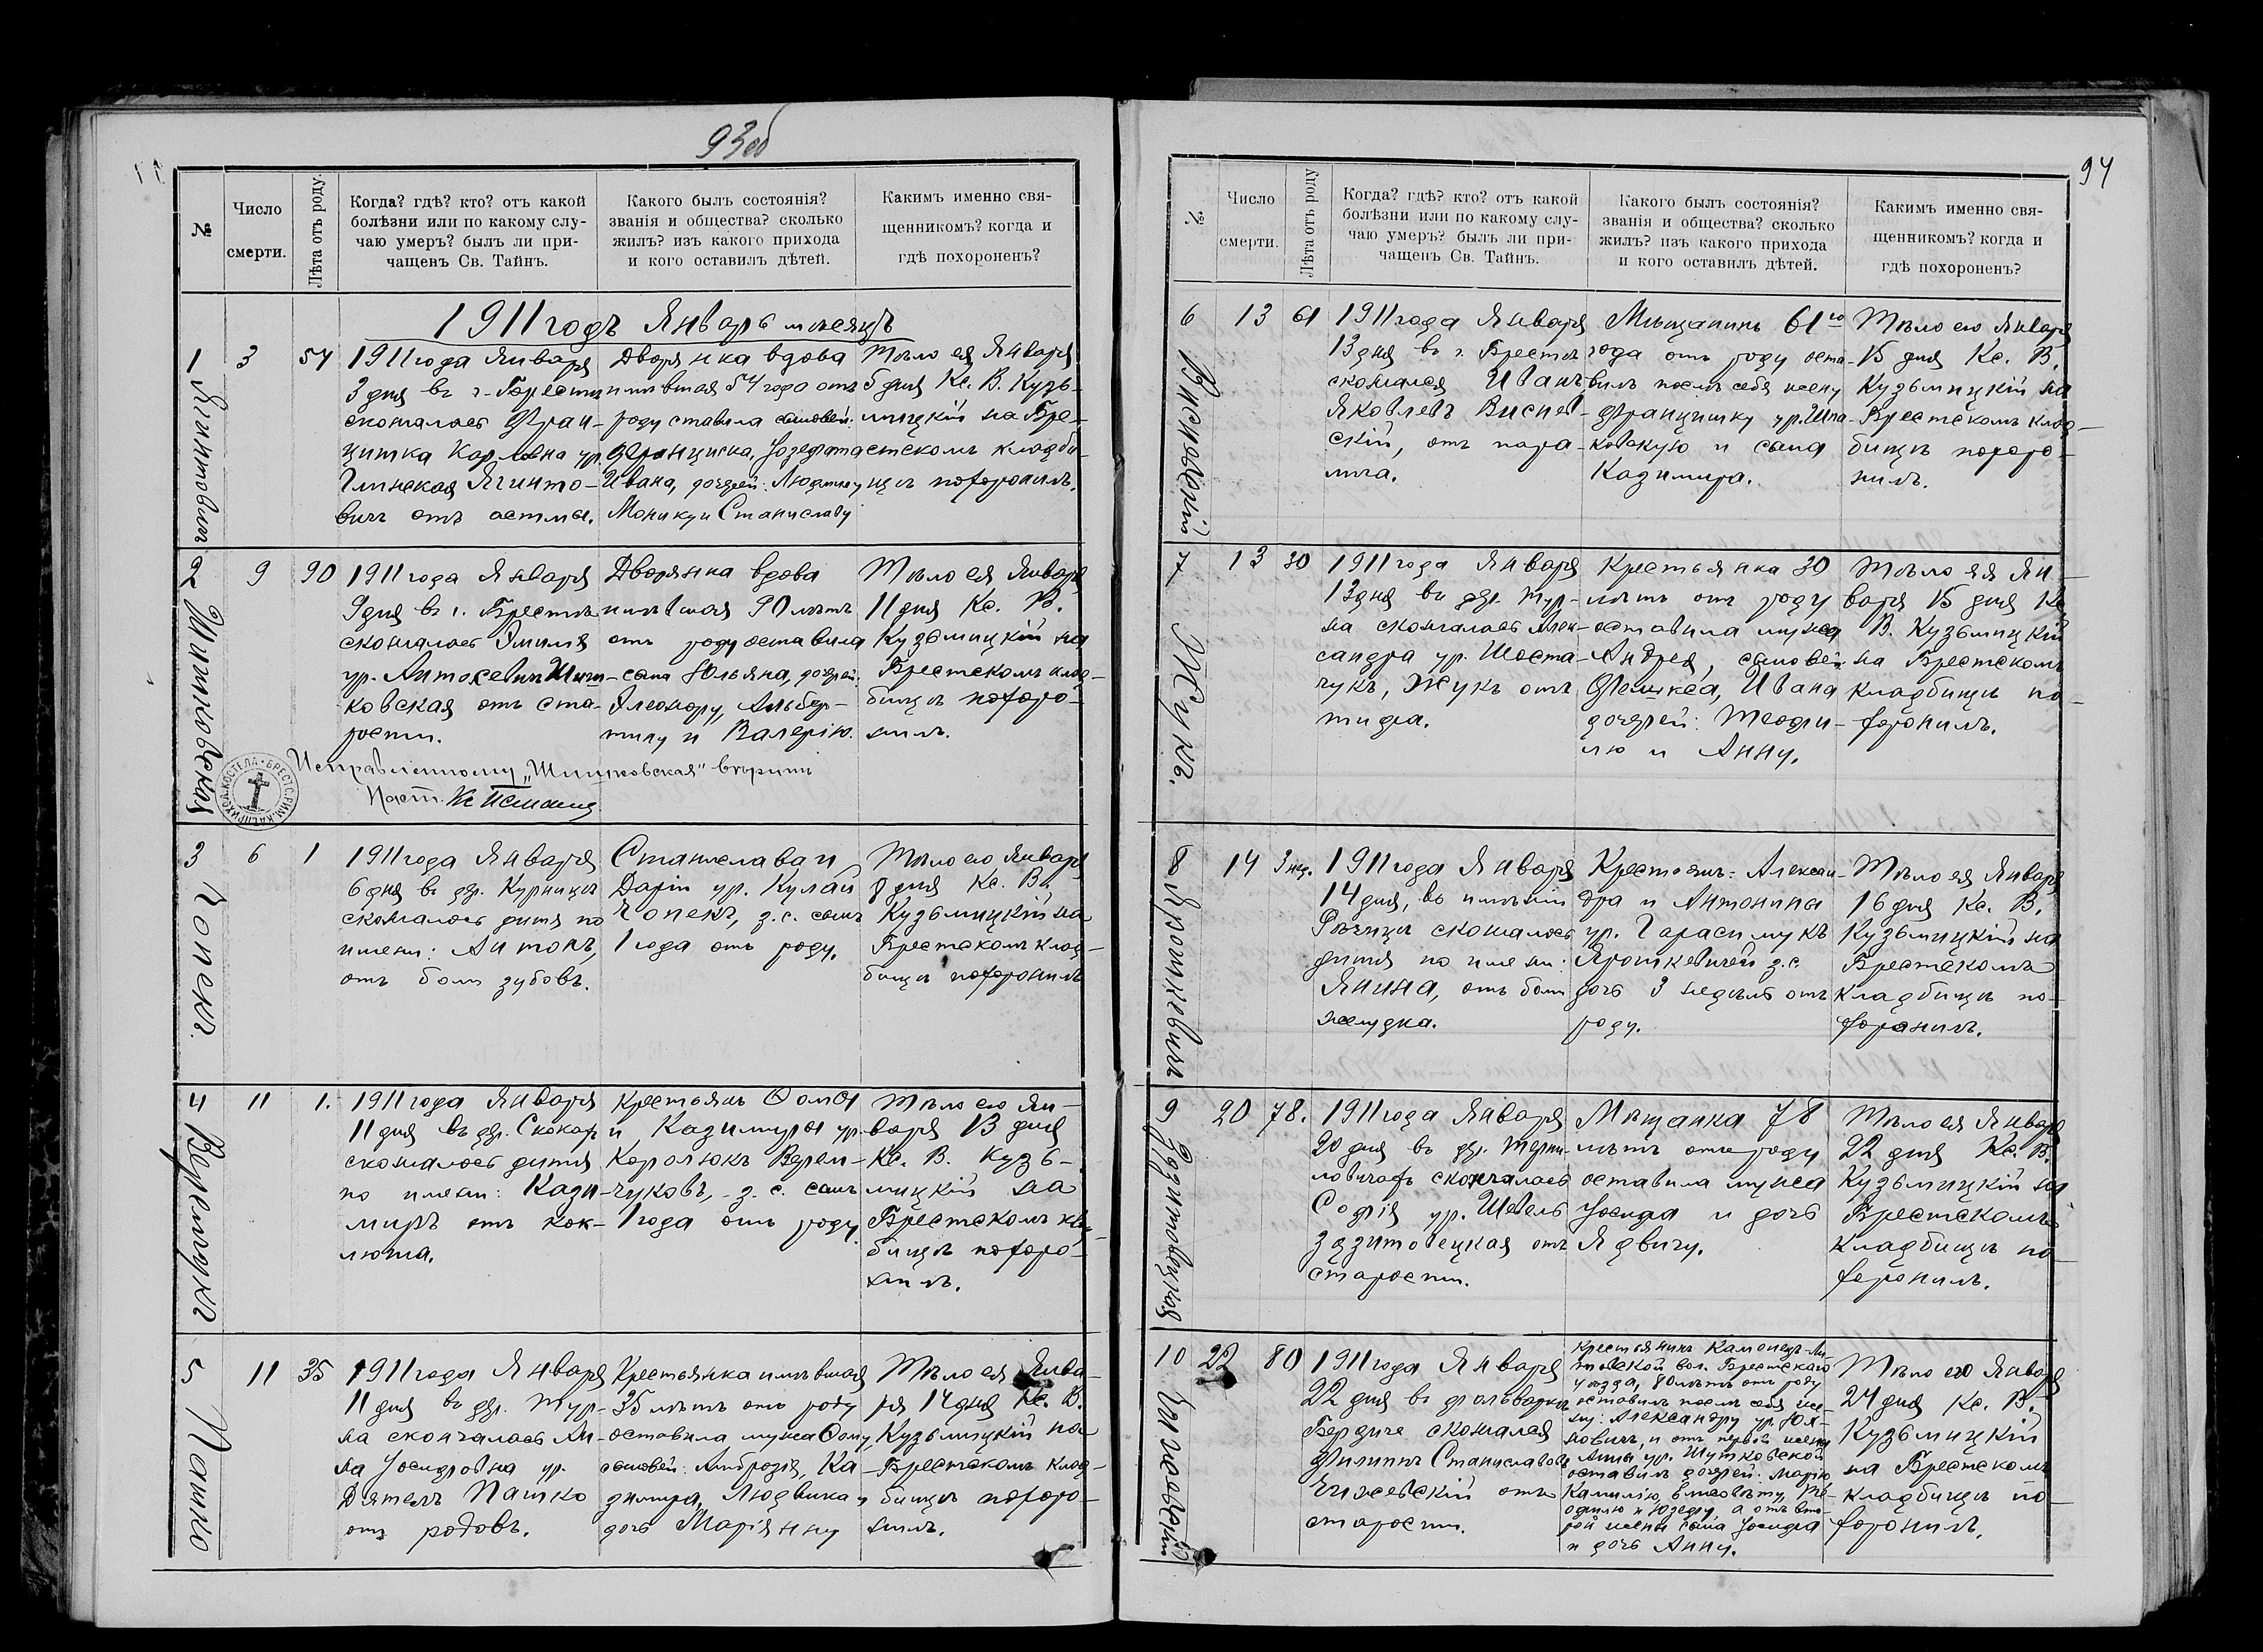 93об
№
Число
смерти.
Лѣта отъ роду.
Когда? гдѣ? кто? отъ какой
болѣзни или по какому слу-
чаю умеръ? былъ ли при-
чащенъ Св. Тайнъ.
Какого былъ состоянія?
званія и общества? сколько
жилъ? изъ какого прихода
и кого оставилъ дѣтей.
Какимъ именно свя-
щенникомъ? когда и
гдѣ похороненъ?
1911 годъ Январь мѣсяцъ
1
Ягинтовичъ
3
54
1911 года Января
3 дня въ г. Брестѣ
скончалась Фран-
цишка Карловна ур.
Глинская Ягинто-
вичъ отъ астмы.
Дворянка вдова
имѣвшая 54 года отъ
роду ставила сыновей:
Францишка, Іозефата
Ивана, дочерей: Людвику
Монику и Станиславу
Тѣло ея Января
5 дня Кс. В. Кузь-
мицкій на Бре-
стскомъ кладби-
щѣ похоронилъ.
2
Шишковская
9
90
1911 года Января
9 дня въ г. Брестѣ
скончалась Эмилія
ур. Антосевичъ Шиш-
ковская отъ ста-
рости.
Дворянка вдова
имѣвшая 90 лѣтъ
отъ роду оставила
сына Юльяна, дочерей:
Элеонору, Альбер-
тину и Валерію.
Тѣло ея Января
11 дня Кс. В.
Кузьмицкій на
Брестскомъ клад-
бищѣ похоро-
нилъ.
Исправленному „Шишковская" вѣрить
Наст. Кс.
БРЕСТ. РИМ. КАТ. ПРИХОД. КОСТЕЛА
3
Чопекъ.
6
1
1911 года Января
6 дня въ дер. Курницѣ
скончалось дитя по
имени: Антонъ,
отъ боли зубовъ.
Станислава и
Даріи ур. Кулай
Чопекъ, з. с. сынъ
1 года отъ роду.
Тѣло его Января
8 дня Кс. В.
Кузьмицкій на
Брестскомъ клад-
бищѣ похоронилъ
4
Веремчукъ
11
1.
1911 года Января
11 дня въ дер. Скоках
скончалось дитя
по имени: Кази-
миръ отъ кок-
люша.
Крестьянъ Ѳомы
и Казимиры ур.
Королюкъ Верем-
чуковъ, з. с. сынъ
1 года отъ роду
Тѣло его Ян-
варя 13 дня
Кс. В. Кузь-
мицкій на
Брестскомъ кла-
бищѣ похоро-
нилъ.
5
Пашко
11
35
1911 года Января
11 дня въ дер. Тур-
на скончалась Ан-
на Іосифовна ур.
Дятелъ Пашко
отъ родовъ.
Крестьянка имѣвшая
35 лѣтъ отъ роду
оставила мужа Ѳому,
сыновей: Амброзія, Ка-
зимира, Людвика и
дочь Маріянну
Тѣло ея Янва-
ря 14 дня Кс. В.
Кузьмицкій на
Брестскомъ клад-
бищѣ похоро-
нилъ.
94
№
Число
смерти.
Лѣта отъ роду
Когда? гдѣ? кто? отъ какой
болѣзни или по какому слу-
чаю умеръ? былъ ли при-
чащенъ Св. Тайнъ.
Какого былъ состоянія?
званія и общества? сколько
жилъ? изъ какого прихода
и кого оставилъ дѣтей.
Какимъ именно свя-
щенникомъ? когда и
гдѣ похороненъ?
6
Висневскій
13
61
1911 года Января
13 дня въ г. Брестѣ
скончался Иванъ
Яковлевъ Виснев-
скій, отъ пара-
лича.
Мѣщанинъ 61го
года отъ роду оста-
вилъ послѣ себя жену
Францишку ур. Шпа-
ковскую и сына
Казимира.
Тѣло его Января
15 дня Кс. В.
Кузьмицкій на
Брестскомъ клад-
бищѣ похоро-
нилъ.
7
Жукъ.
13
30
1911 года Января
13 дня въ дер. Тур-
на скончалась Алек-
сандра ур. Шоста-
чукъ, Жукъ отъ
тифа.
Крестьянка 30
лѣтъ отъ роду
оставила мужа
Андрея, сыновей:
Феликса, Ивана
дочерей: Теофи-
лю и Анну.
Тѣло ея Ян-
варя 15 дня Кс.
В. Кузьмицкій
на Брестскомъ
кладбищѣ по-
хоронилъ.
8
Ярошкевичъ
14
3 нед.
1911 года Января
14 дня, въ имѣніи
Рѣчицѣ скончалось
дитя по имени:
Янина, отъ боли
желудка.
Крестьянъ: Алексан-
дра и Антонины
ур. Гарасимукъ
Ярошкевичей з. с.
дочь 3 недѣль отъ
роду.
Тѣло ея Января
16 дня Кс. В.
Кузьмицкій на
Брестскомъ
кладбищѣ по-
хоронилъ.
9
Здзитовецкая
20
78.
1911 года Января
20 дня въ дер. Терпи-
ловичахъ скончалась
Софія ур. Шевель
Здзитовецкая отъ
старости.
Мѣщанка 78
лѣтъ отъ роду
оставила мужа
Іосифа и дочь
Ядвигу.
Тѣло ея Января
22 дня Кс. В.
Кузьмицкій на
Брестскомъ
кладбищѣ по-
хоронилъ.
10
Чижевскій
22
80
1911 года Января
22 дня въ фольваркѣ
Бердиче скончался
Филиппъ Станиславовъ
Чижевскій отъ
старости.
Крестьянинъ Каменец-Ли-
товской вол. Брестскаго
уѣзда, 80 лѣтъ отъ роду
оставилъ послѣ себя же-
ну: Александру ур. Юх-
новичъ, и отъ первой жены
Анны ур. Шутковской
оставилъ дочерей: Марію
Камилію, Елисавету, Те-
офилю и Юзефу, а отъ вто-
рой жены сына Іосифа
и дочь Анну.
Тѣло его Января
24 дня Кс. В.
Кузьмицкій
на Брестскомъ
кладбищѣ по-
хоронилъ.